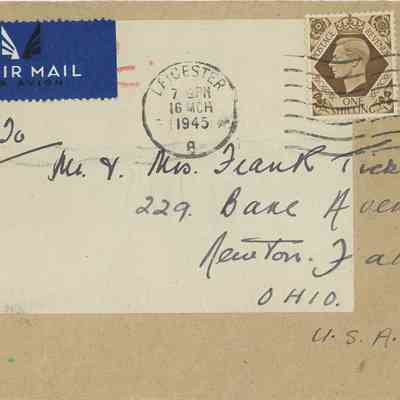 AIR MAIL
PAR AVION
LEICESTER
7 – PM
16 MCH
1945
8
POSTAGE REVENUE
ONE
SHILLING
To
Mr. & Mrs. Frank Tick
229. Bane Aven
Newton. Fal
OHIO.
U.S.A.